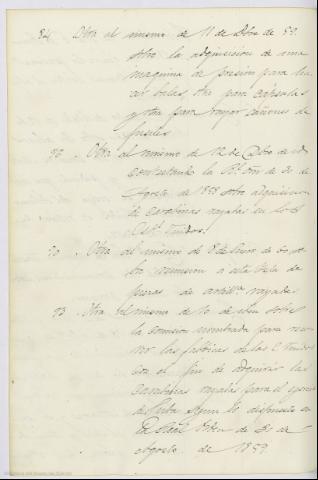 84. Otra al mismo de 11 de Dbre de 59.
sobre la adquisicion de una
maquina de presion para ha-
cer balas, otra para capsulas
y otra para rayar cañones de
fusiles
90. Otra al mismo de 12 de de id
contestando la Rl. orn de 30 de
Agosto de 1858 sobre adquisicion
de carabinas rayadas en los E.
Unidos.
90. Otra al mismo de 8 de Enero de 60 so-
bre remision a esta Isla de
piezas de artilla. rayadas
93. Otra al mismo de 10 de idem sobre
la comision nombrada para recor-
rer las fabricas de los E. Unidos
con el fin de adquirir las
carabinas rayadas para el egercito
de Cuba segun lo dispuesto en
Real Orden de 30 de
Agosto de 1859.